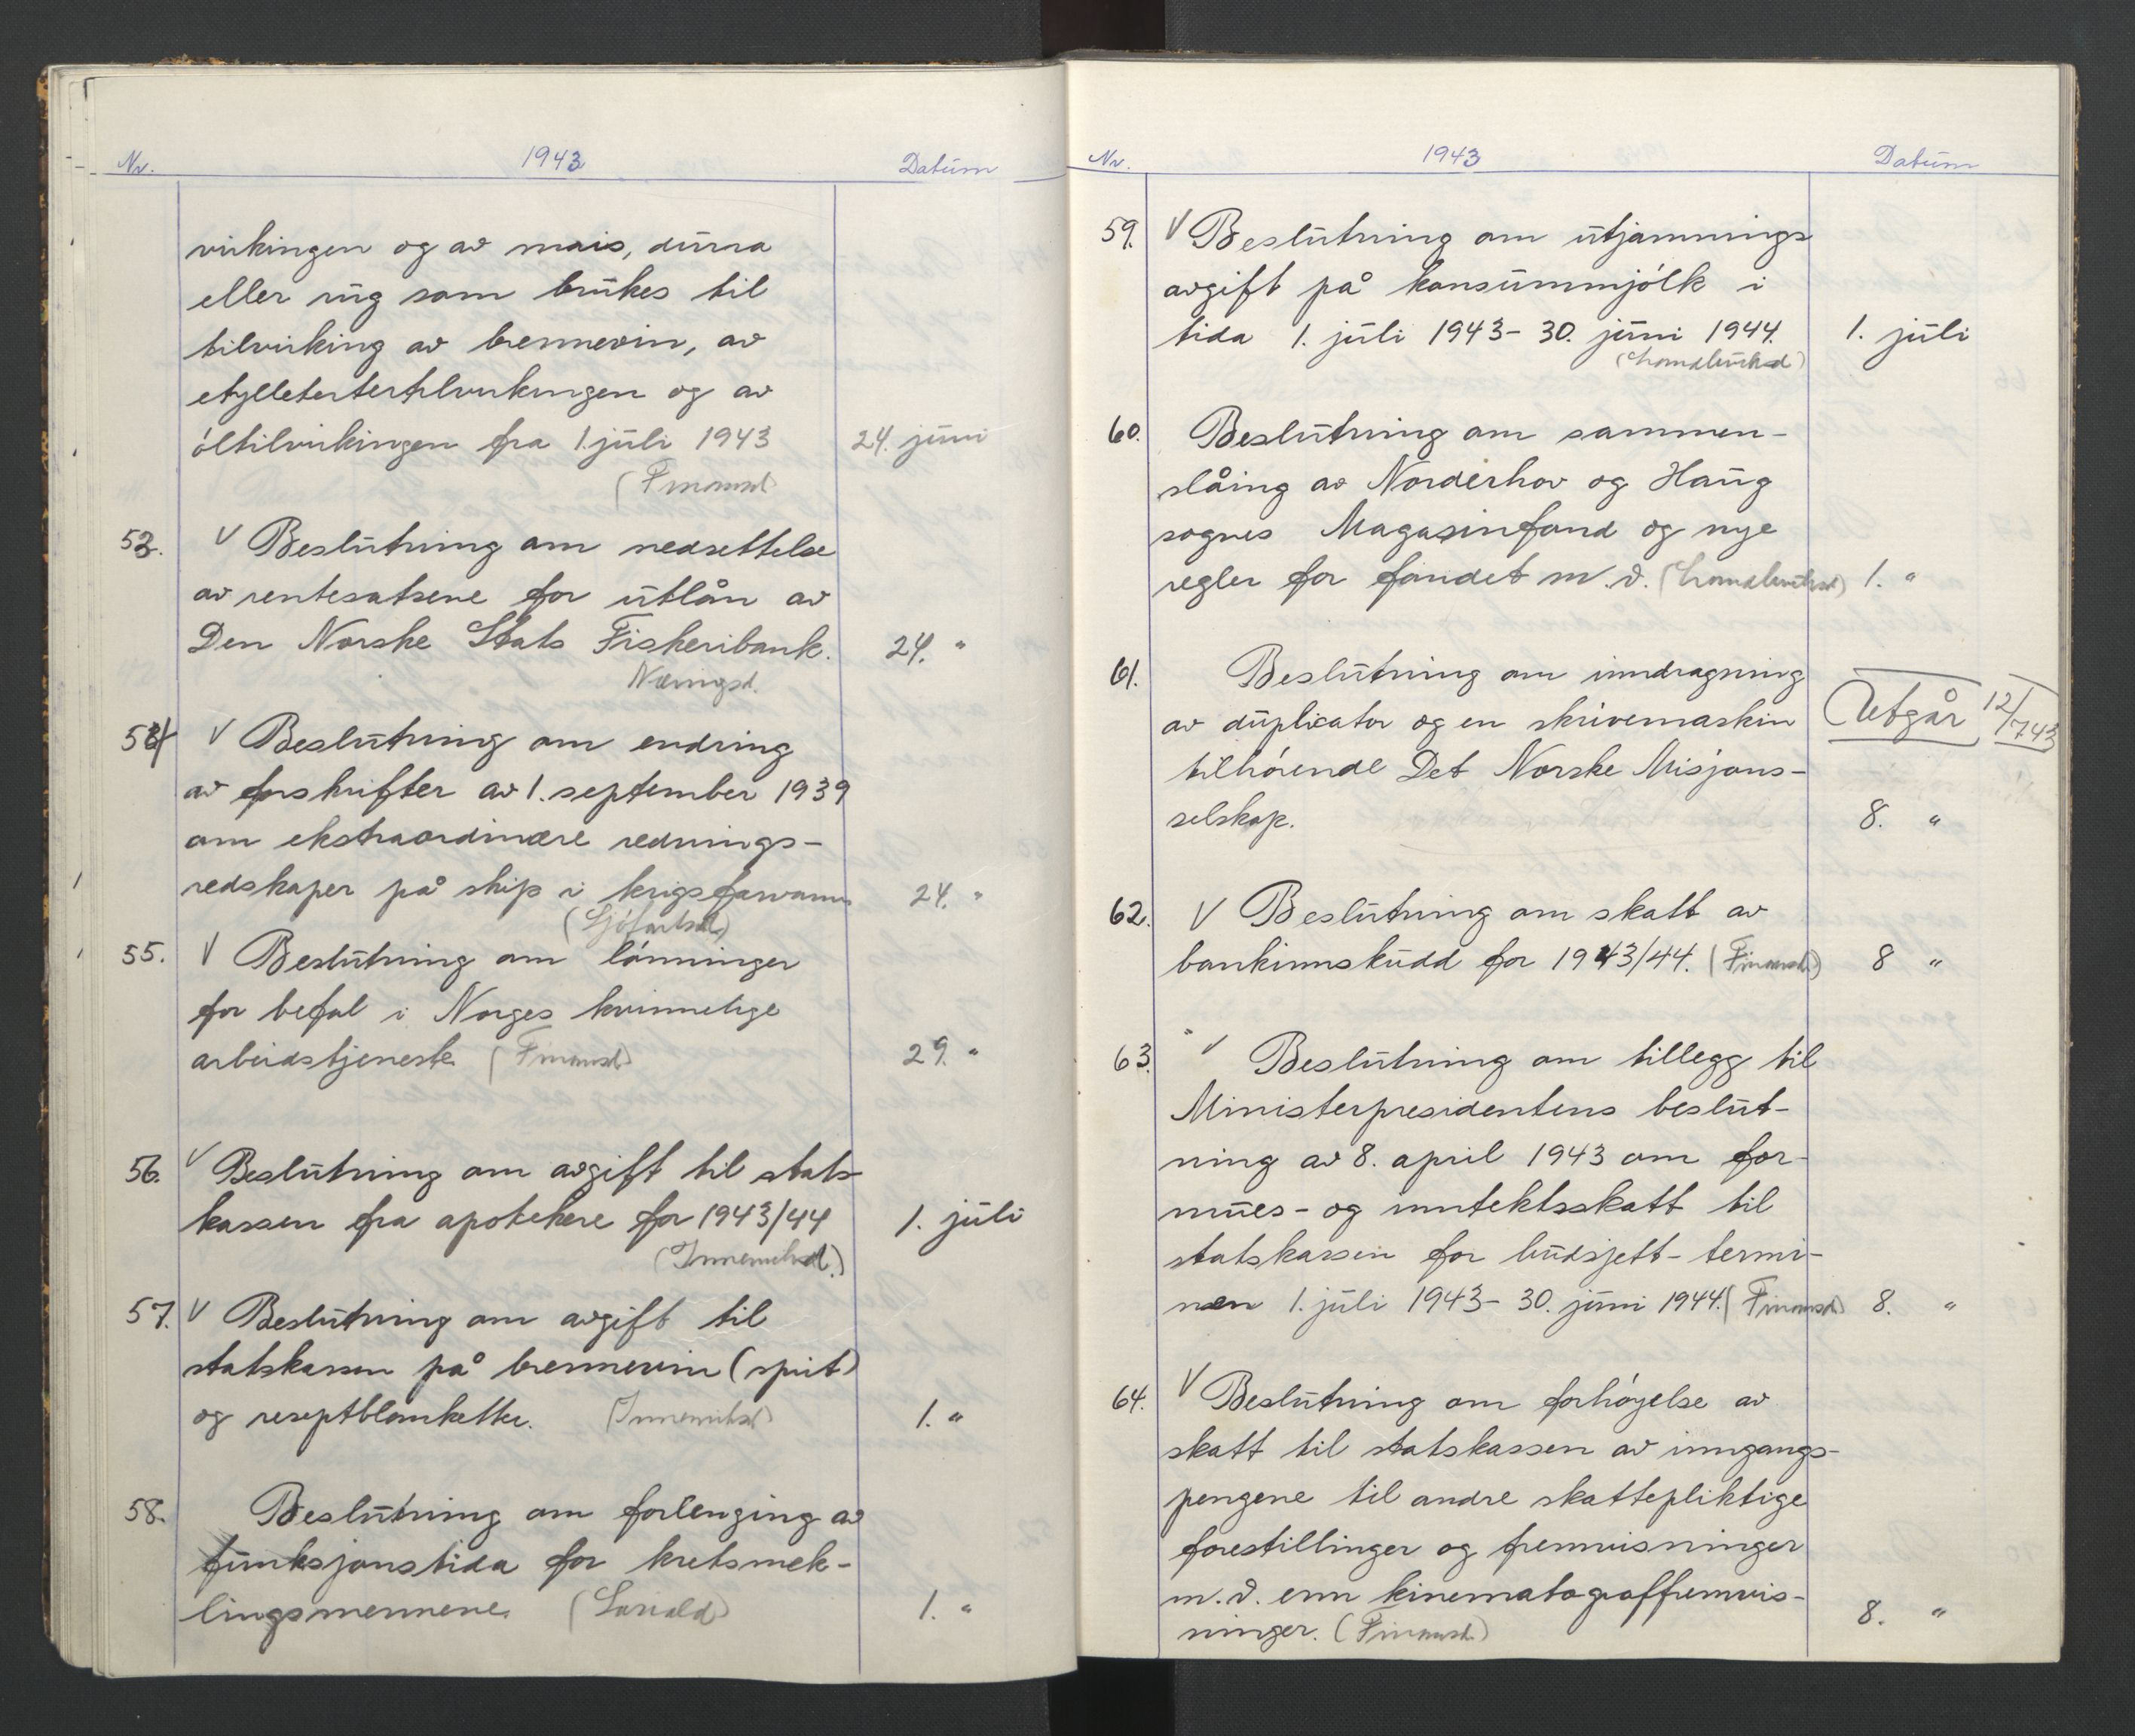 Nr. 1943 Datum
virkingen og av mais, durra
eller rug som brukes til
tilvirking av brennevin, av
etylletertertilvirkingen og av
óltilvirkingen fra 1. juli 1943 24. juni
(Finansd.)
53. V Beslutning om nedsettelse
av rentesatsene for utlån av
Den Norske Stats Fiskeribank. 24. "
Næringsd.
54 V Beslutning om endring
av forskrifter av 1. september 1939
om ekstraordinære rednings-
redskaper på skip i krigsfarvann 24. "
(Sjófartsd.)
55. V Beslutning om lónninger
for befal i Norges kvinnelige
arbeidstjeneste (Finansd.) 29. "
56. V Beslutning om avgift til stats-
kassen fra apotekere for 1943/44 1. juli
(Innenriksd.)
57. V Beslutning om avgift til
statskassen på brennevin (sprit)
og reseptblanketter. (Innenriksd.) 1. "
58. Beslutning om forlenging av
funksjonstida for kretsmek-
lingsmennene. (Soriald) 1. "
Nr. 1943 Datum
59. V Beslutning om utjamnings
avgift på konsummjólk i
tida 1. juli 1943 - 30. juni 1944. 1. juli
(Landbruksd.)
60. Beslutning om sammen-
slåing av Norderhov og Haug
sognes Magasinfond og nye
regler for fondet m. v. (Landbruksd.) 1. "
61. Beslutning om inndragning
av duplicator og en skrivemaskin Utgår 12/7 43
tilhórende Det Norske Misjons-
selskap. 8. "
62. V Beslutning om skatt av
bankinnskudd for 1943/44. (Finansd.) 8 "
63. V Beslutning om tillegg til
Ministerpresidentens beslut-
ning av 8. april 1943 om for-
mues- og inntektsskatt til
statskassen for budsjett-termi-
nen 1. juli 1943 - 30. juni 1944. (Finansd.) 8. "
64. V Beslutning om forhóyelse av
skatt til statskassen av inngangs-
pengene til andre skattepliktige
forestillinger og fremvisninger
m. v. enn kinematograffremvis-
ninger. (Finansd.) 8. "